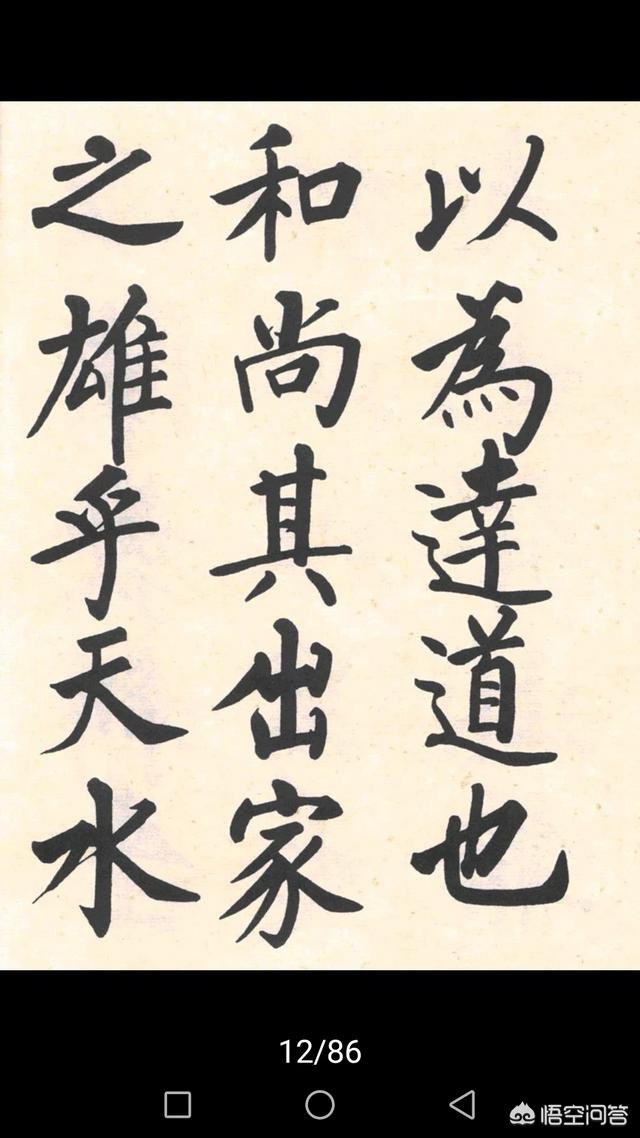 以為達道也
和尚其出家
之雄乎天水
12/86
悟空问答